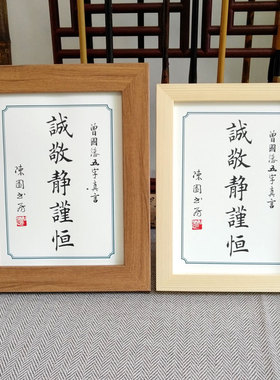 曾國藩五字真言
誠敬静謹恒
陳園书房
曾國藩五字真言
誠敬静謹恒
陳園书房